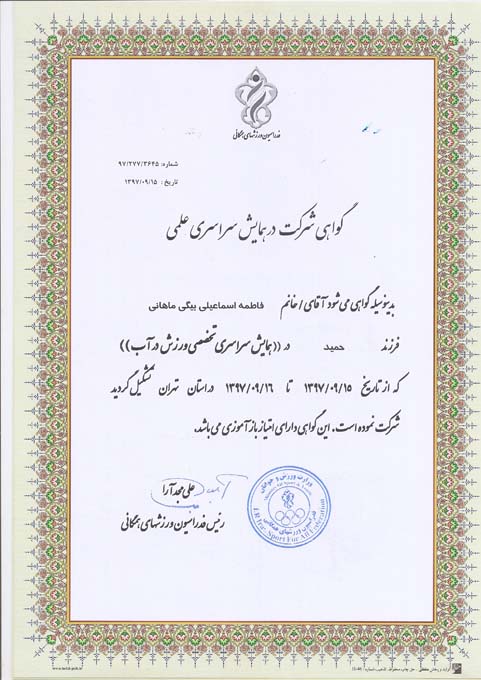 فدراسیون ورزشهای همگانی
شماره: ۹۷/۲۷۷/۳۶۴۵
تاریخ: ۱۳۹۷/۰۹/۱۵
گواهی شرکت در همایش سراسری علمی
بدینوسیله گواهی می شود آقای / خانم فاطمه اسماعیلی بیگی ماهانی
فرزند حمید در ((همایش سراسری تخصصی ورزش در آب))
که از تاریخ ۱۳۹۷/۰۹/۱۵ تا ۱۳۹۷/۰۹/۱۶ در استان تهران تشکیل گردید
شرکت نموده است. این گواهی دارای امتیاز بازآموزی می باشد.
علی مجدآرا
رئیس فدراسیون ورزشهای همگانی
وزارت ورزش و جوانان
فدراسیون ورزشهای همگانی
I.R.Iran Sport For All Federation